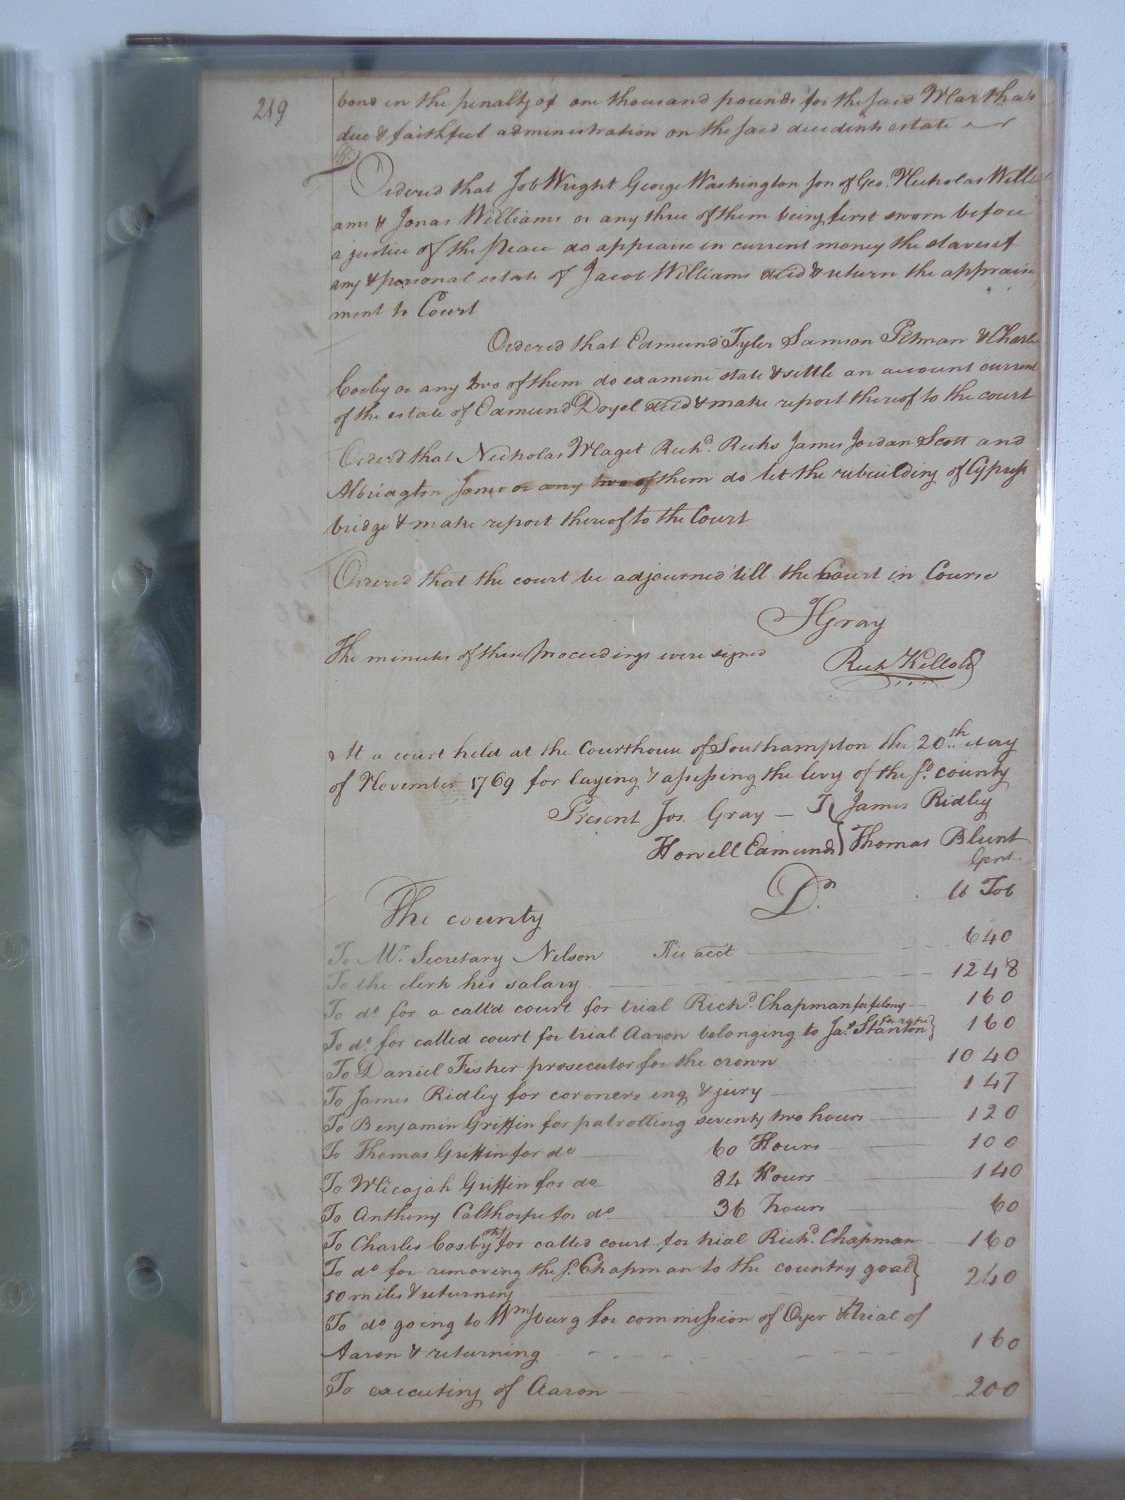 219
bond in the penalty of one thousand pounds for the said Martha's
due & faithful administration on the said decedents estate
Ordered that Job Wright George Washington son of Geo. Nicholas Willi
ams & Jonas Williams or any three of them being first sworn before
a justice of the Peace do appraise in current money the slaves if
any & personal estate of Jacob Williams decd & return the appraise
ment to Court
Ordered that Edmund Tyler Samson Pitman & Charles
Cosby or any two of them do examine state & settle an account current
of the estate of Edmund Doyel decd & make report thereof to the court
Orderd that Nicholas Maget Richd. Ricks James Jordan Scott and
Albriagton Jones or any two of them do let the rebuilding of Cypress
bridge & make report thereof to the Court
Ordered that the court be adjourned till the Court in Course
The minutes of these proceedings were signed
JGray
Rich Kello
At a court held at the Courthouse of Southampton the 20th day
of November 1769 for laying & assessing the levy of the sd. county
Present Jos. Gray — James Ridley
Howell Edmunds } Thomas Blunt
Gent.
The county Dr. lb Tob
To Mr. Secretary Nelson his acct 640
To the clerk his salary 1248
To do for a calld court for trial Richd. Chapman for felony 160
To do. for called court for trial Aaron belonging to Jas. Stanton for rape } 160
To Daniel Fisher prosecutor for the crown 1040
To James Ridley for coroners inq & jury 147
To Benjamin Griffin for patrolling seventy two hours 120
To Thomas Griffin for do 60 Hours 100
To Micajah Griffin for do 84 Hours 140
To Anthony Calthorpe for do 36 hours 60
To Charles Cosby for called court for trial Richd. Chapman 160
To do for removing the sd. Chapman to the country goal }
50 miles & returning 240
To do going to Wmsburg for commission of Oyer & trial of
Aaron & returning 160
To executing of Aaron 200